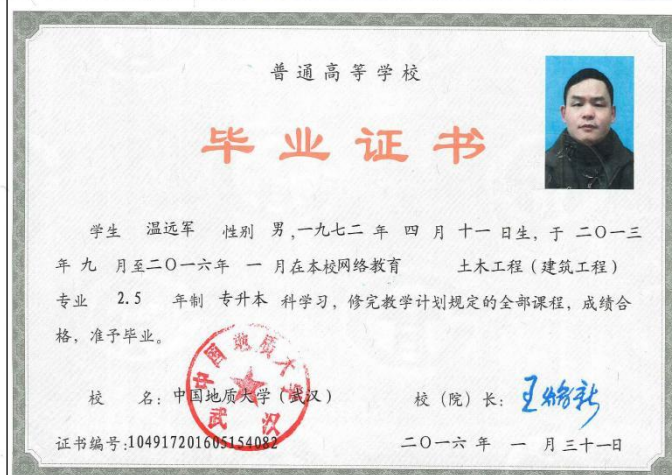 普通高等学校
毕业证书
学生 温远军 性别 男,一九七二 年 四 月 十一 日生, 于 二〇一三
年 九 月至二〇一六年 一 月在本校网络教育 土木工程(建筑工程)
专业 2.5 年制 专升本 科学习, 修完教学计划规定的全部课程, 成绩合
格, 准予毕业。
中国地质大学
武汉
校 名: 中国地质大学(武汉) 校(院)长:
证书编号:104917201605154082 二〇一六 年 一 月三十一日